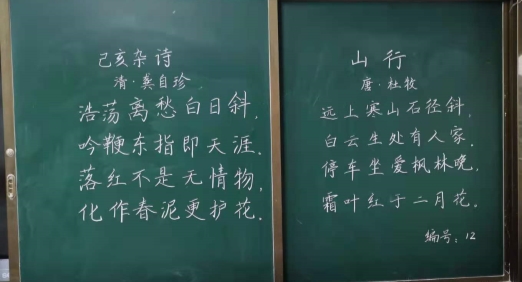 己亥杂诗
清·龚自珍
浩荡离愁白日斜,
吟鞭东指即天涯.
落红不是无情物,
化作春泥更护花.
山行
唐·杜牧
远上寒山石径斜,
白云生处有人家.
停车坐爱枫林晚,
霜叶红于二月花.
编号:12